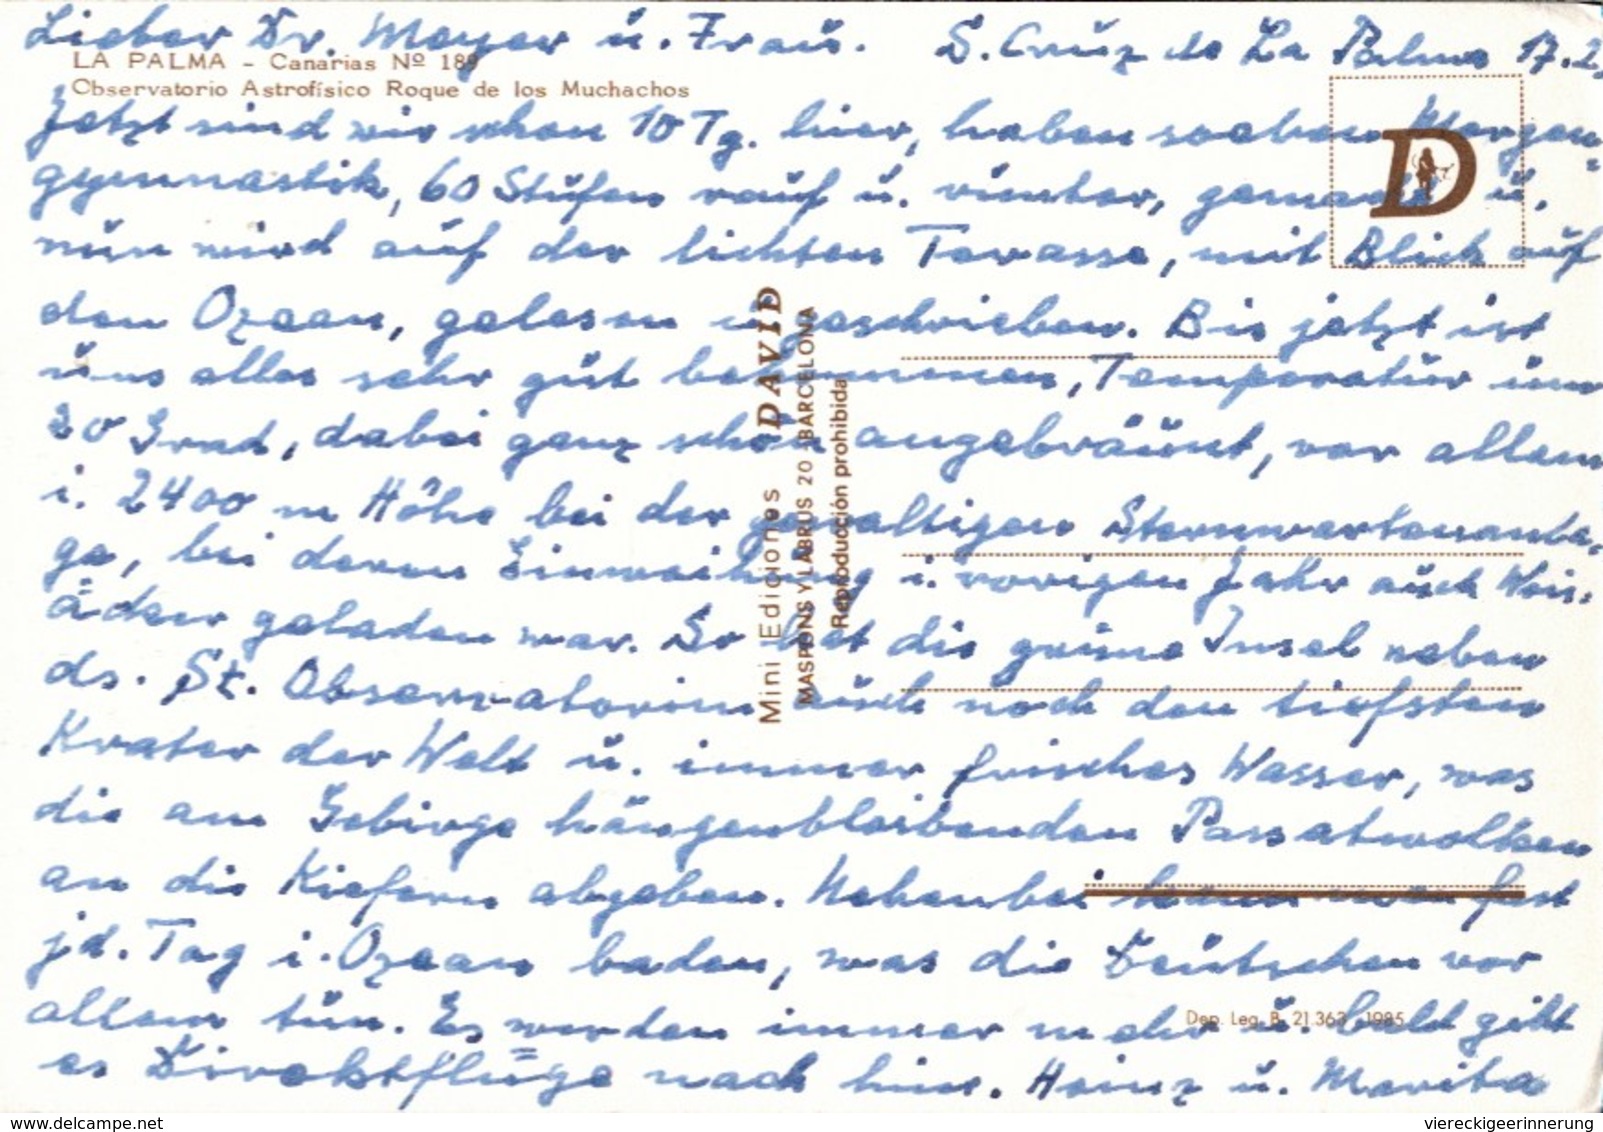 Lieber Dr. Meyer u. Frau. S. Cruz de La Palma 17.2.
LA PALMA - Canarias Nº 189
Observatorio Astrofísico Roque de los Muchachos
Jetzt sind wir schon 10 Tg. hier, haben soeben Morgen-
gymnastik, 60 Stufen rauf u. runter, gemacht u.
nun wird auf der lichten Terasse, mit Blick auf
den Ozean, gelesen u. geschrieben. Bis jetzt ist
uns alles sehr gut bekommen, Temperatur um
20 Grad, dabei ganz schön angebräunt, vor allem
i. 2400 m Höhe bei der gewaltigen Sternwartenanla-
ge, bei deren Einweihung i. vorigen Jahr auch Weiz-
äcker geladen war. So hat die grüne Insel neben
ds. St. Observatorium auch noch den tiefsten
Krater der Welt u. immer frisches Wasser, was
die am Gebirge hängenbleibenden Passatwolken
an die Kiefern abgeben. Nebenbei kann man fast
jd. Tag i. Ozean baden, was die Deutschen vor
allem tun. Es werden immer mehr u. bald gibt
es Direktflüge nach hier. Heinz u. Marita
Mini Ediciones DAVID
MASPONS Y LABRUS 20 - BARCELONA
Reproducción prohibida
D
Dep. Leg. B. 21.363 - 1985
viereckigeerinnerung